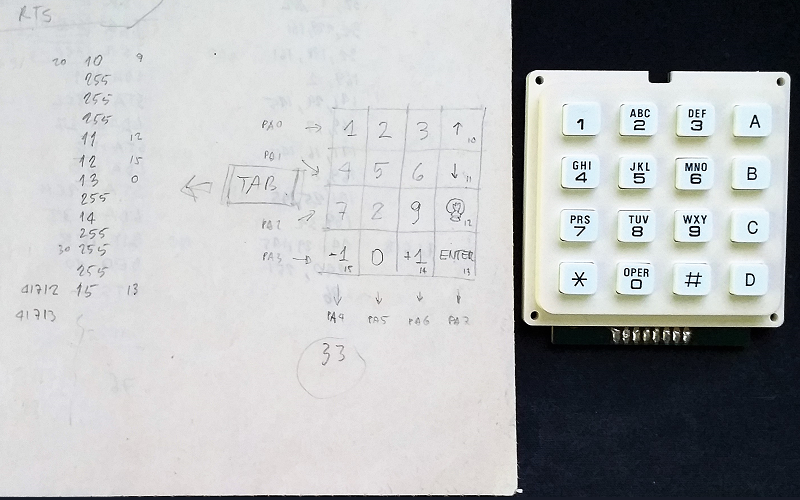 RTS
20 10 9
255
255
255
11 12
12 15
13 0
255
14
255
30 255
255
41712 15 13
41713
TAB
PA0 → 1 2 3 ↑ 10
PA1 4 5 6 ↓ 11
PA2 7 2 9 12
PA3 → -1 15 0 +1 14 ENTER 13
PA4 PA5 PA6 PA7
33
1 ABC 2 DEF 3 A
GHI 4 JKL 5 MNO 6 B
PRS 7 TUV 8 WXY 9 C
* OPER 0 # D